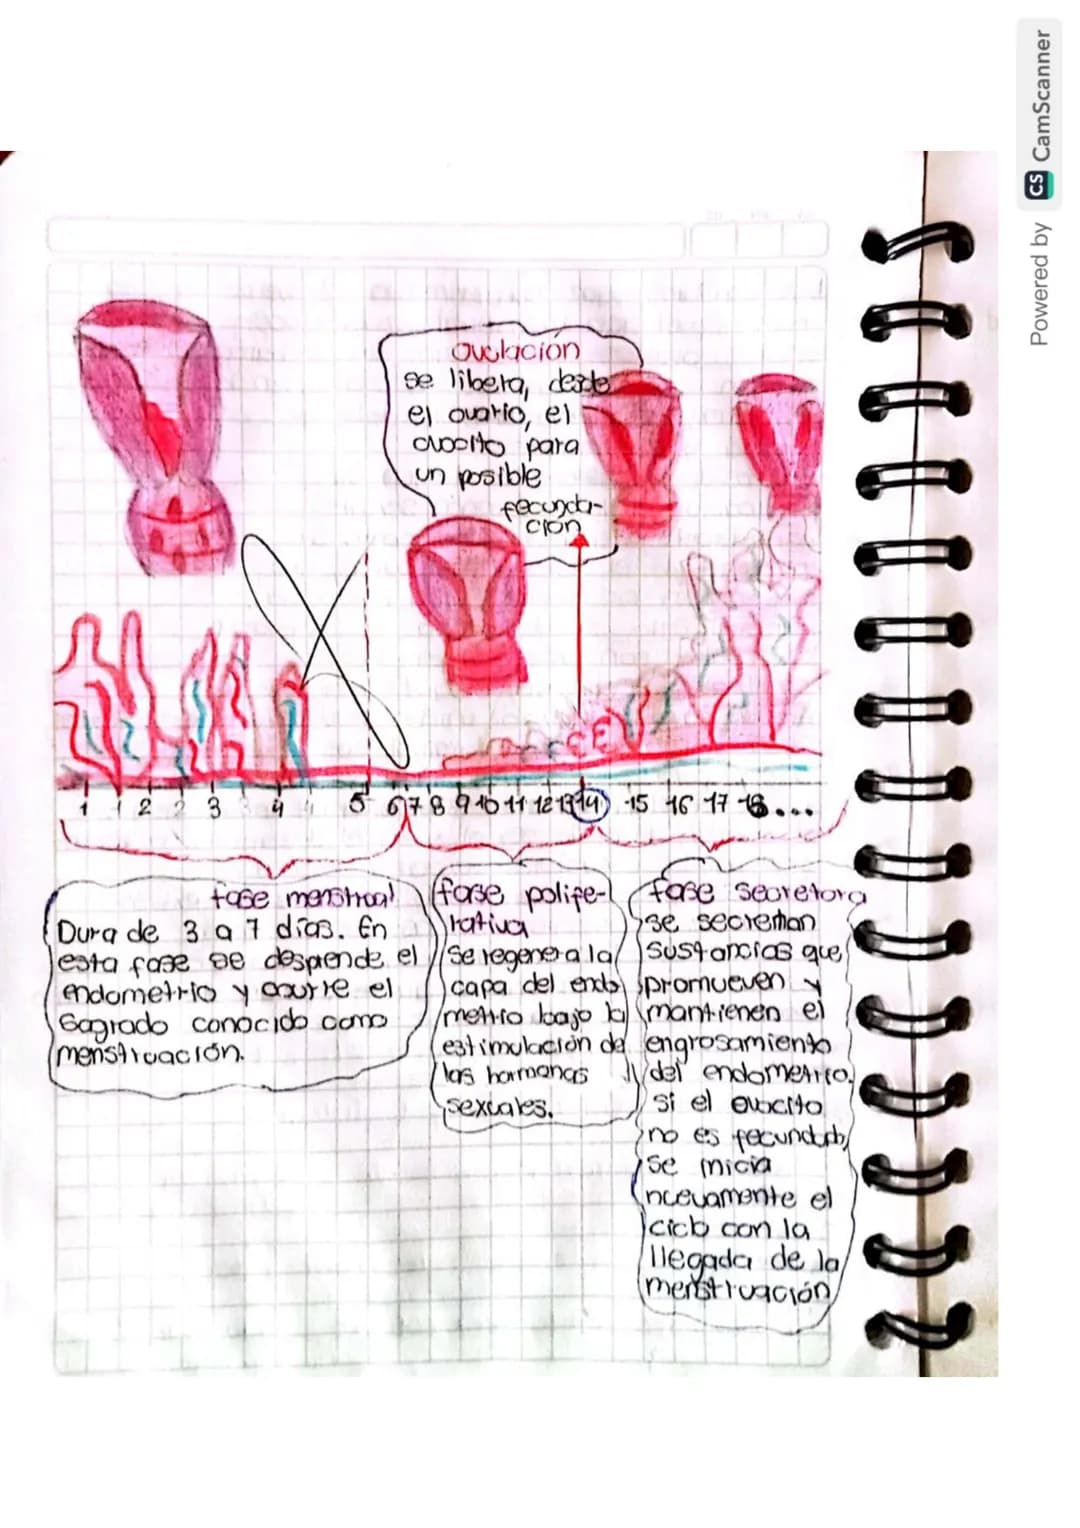 Powered by CS CamScanner
Ovulación
se libera, desde
el ovario, el
ovocito para
un posible
fecunda-
ción
1 2 3 4 5 6 7 8 9 10 11 12 13 14 15 16 17 18...
fase menstrual
Dura de 3 a 7 días. En
esta fase se desprende el
endometrio y ocurre el
Sagrado conocido como
menstruación.
fase polife-
rativa
Se regenera la
capa del endo
metrio bajo la
estimulación de
las hormonas
sexuales.
fase secretora
se secretan
sustancias que
promueven y
mantienen el
engrosamiento
del endometrio.
si el ovocito
no es fecundado,
se inicia
nuevamente el
ciclo con la
llegada de la
menstruación